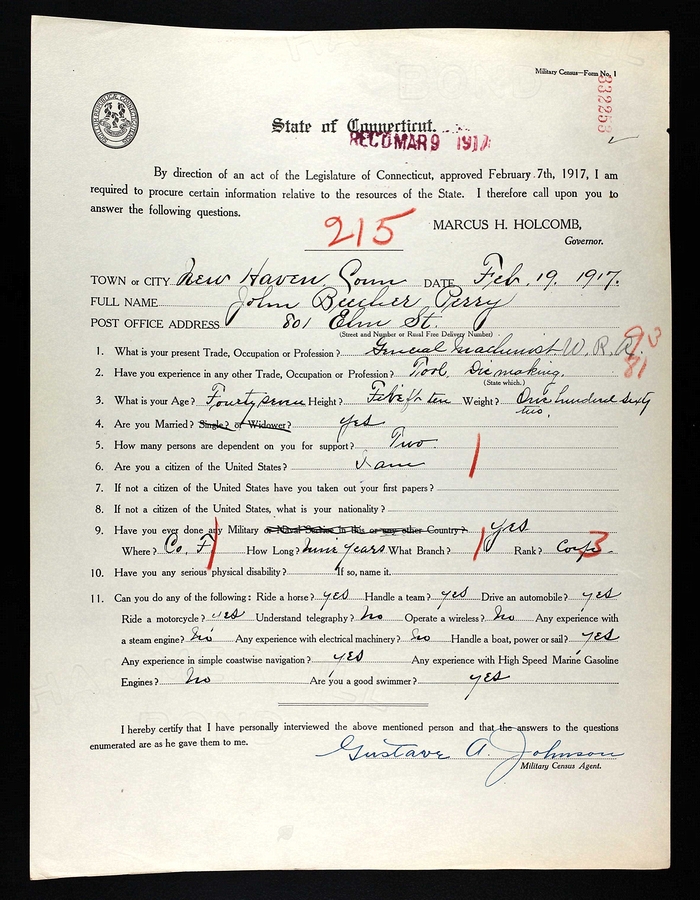 Military Census—Form No. 1
332253
State of Connecticut.
REC'D MAR 9 1917
By direction of an act of the Legislature of Connecticut, approved February 7th, 1917, I am
required to procure certain information relative to the resources of the State. I therefore call upon you to
answer the following questions.
215
MARCUS H. HOLCOMB,
Governor.
TOWN or CITY New Haven, Conn DATE Feb. 19. 1917.
FULL NAME John Beecher Perry
POST OFFICE ADDRESS 801 Elm St.
(Street and Number or Rural Free Delivery Number)
90
1. What is your present Trade, Occupation or Profession? General Machinist. W. R. A.
81
2. Have you experience in any other Trade, Occupation or Profession? Tool, Die making.
(State which.)
3. What is your Age? Fourty seven Height? Five ft ten Weight? One hundred sixty
two.
4. Are you Married? Single? or Widower? yes
5. How many persons are dependent on you for support? Two.
6. Are you a citizen of the United States? I am
7. If not a citizen of the United States have you taken out your first papers?
8. If not a citizen of the United States, what is your nationality?
9. Have you ever done any Military or Naval Service in this or any other Country? yes
Where? Co. F How Long? nine years What Branch? Rank? Corp. 3
10. Have you any serious physical disability? If so, name it.
11. Can you do any of the following: Ride a horse? yes Handle a team? yes Drive an automobile? yes
Ride a motorcycle? yes Understand telegraphy? No Operate a wireless? No Any experience with
a steam engine? No Any experience with electrical machinery? No Handle a boat, power or sail? yes
Any experience in simple coastwise navigation? yes Any experience with High Speed Marine Gasoline
Engines? No Are you a good swimmer? yes
I hereby certify that I have personally interviewed the above mentioned person and that the answers to the questions
enumerated are as he gave them to me.
Gustave A. Johnson
Military Census Agent.